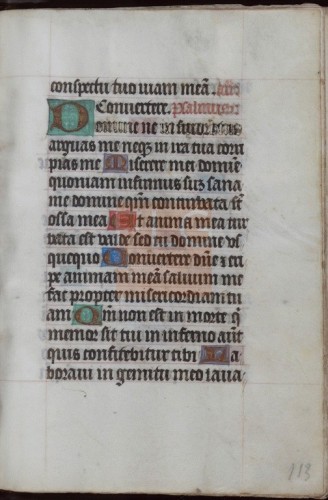 conspectu tuo viam meā. añ
Convertere. psalmus.
Domine ne in furore tuo
arguas me neq̨ in ira tua corri
pias me Miserere mei domine
quoniam infirmus suz sana
me domine qm̄ conturbata sūt
ossa mea Et anima mea tur
bata est valde sed tu domine vs
quequo Convertere dn̄e z eri
pe animam meā salvum me
fac propter misericordiam tu
am Qm̄ non est in morte q̄
memor sit tui in inferno aūt
quis confitebitur tibi La
boravi in gemitu meo lava
113